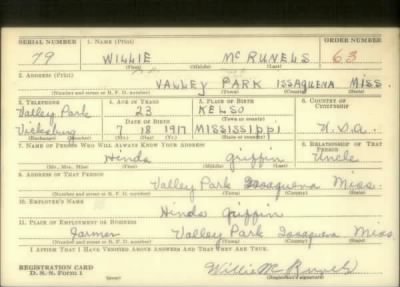 SERIAL NUMBER 1. NAME (Print) ORDER NUMBER
79 WILLIE McRUNELS 63
(First) (Middle) (Last)
2. ADDRESS (Print)
VALLEY PARK ISSAQUENA MISS.
(Number and street or R. F. D. number) (Town) (County) (State)
3. TELEPHONE 4. AGE IN YEARS 5. PLACE OF BIRTH 6. COUNTRY OF CITIZENSHIP
Valley Park 23 KELSO
DATE OF BIRTH (Town or county)
Vicksburg 7 18 1917 MISSISSIPPI U.S.A.
(Exchange) (Number) (Mo.) (Day) (Yr.) (State or country)
7. NAME OF PERSON WHO WILL ALWAYS KNOW YOUR ADDRESS 8. RELATIONSHIP OF THAT PERSON
Hinds Griffin Uncle
(Mr., Mrs., Miss) (First) (Middle) (Last)
9. ADDRESS OF THAT PERSON
Valley Park Issaquena Miss.
(Number and street or R. F. D. number) (Town) (County) (State)
10. EMPLOYER'S NAME
Hinds Griffin
11. PLACE OF EMPLOYMENT OR BUSINESS
Farmer Valley Park Issaquena Miss.
(Number and street or R. F. D. number) (Town) (County) (State)
I AFFIRM THAT I HAVE VERIFIED ABOVE ANSWERS AND THAT THEY ARE TRUE.
REGISTRATION CARD
D. S. S. Form 1 Willie McRunels